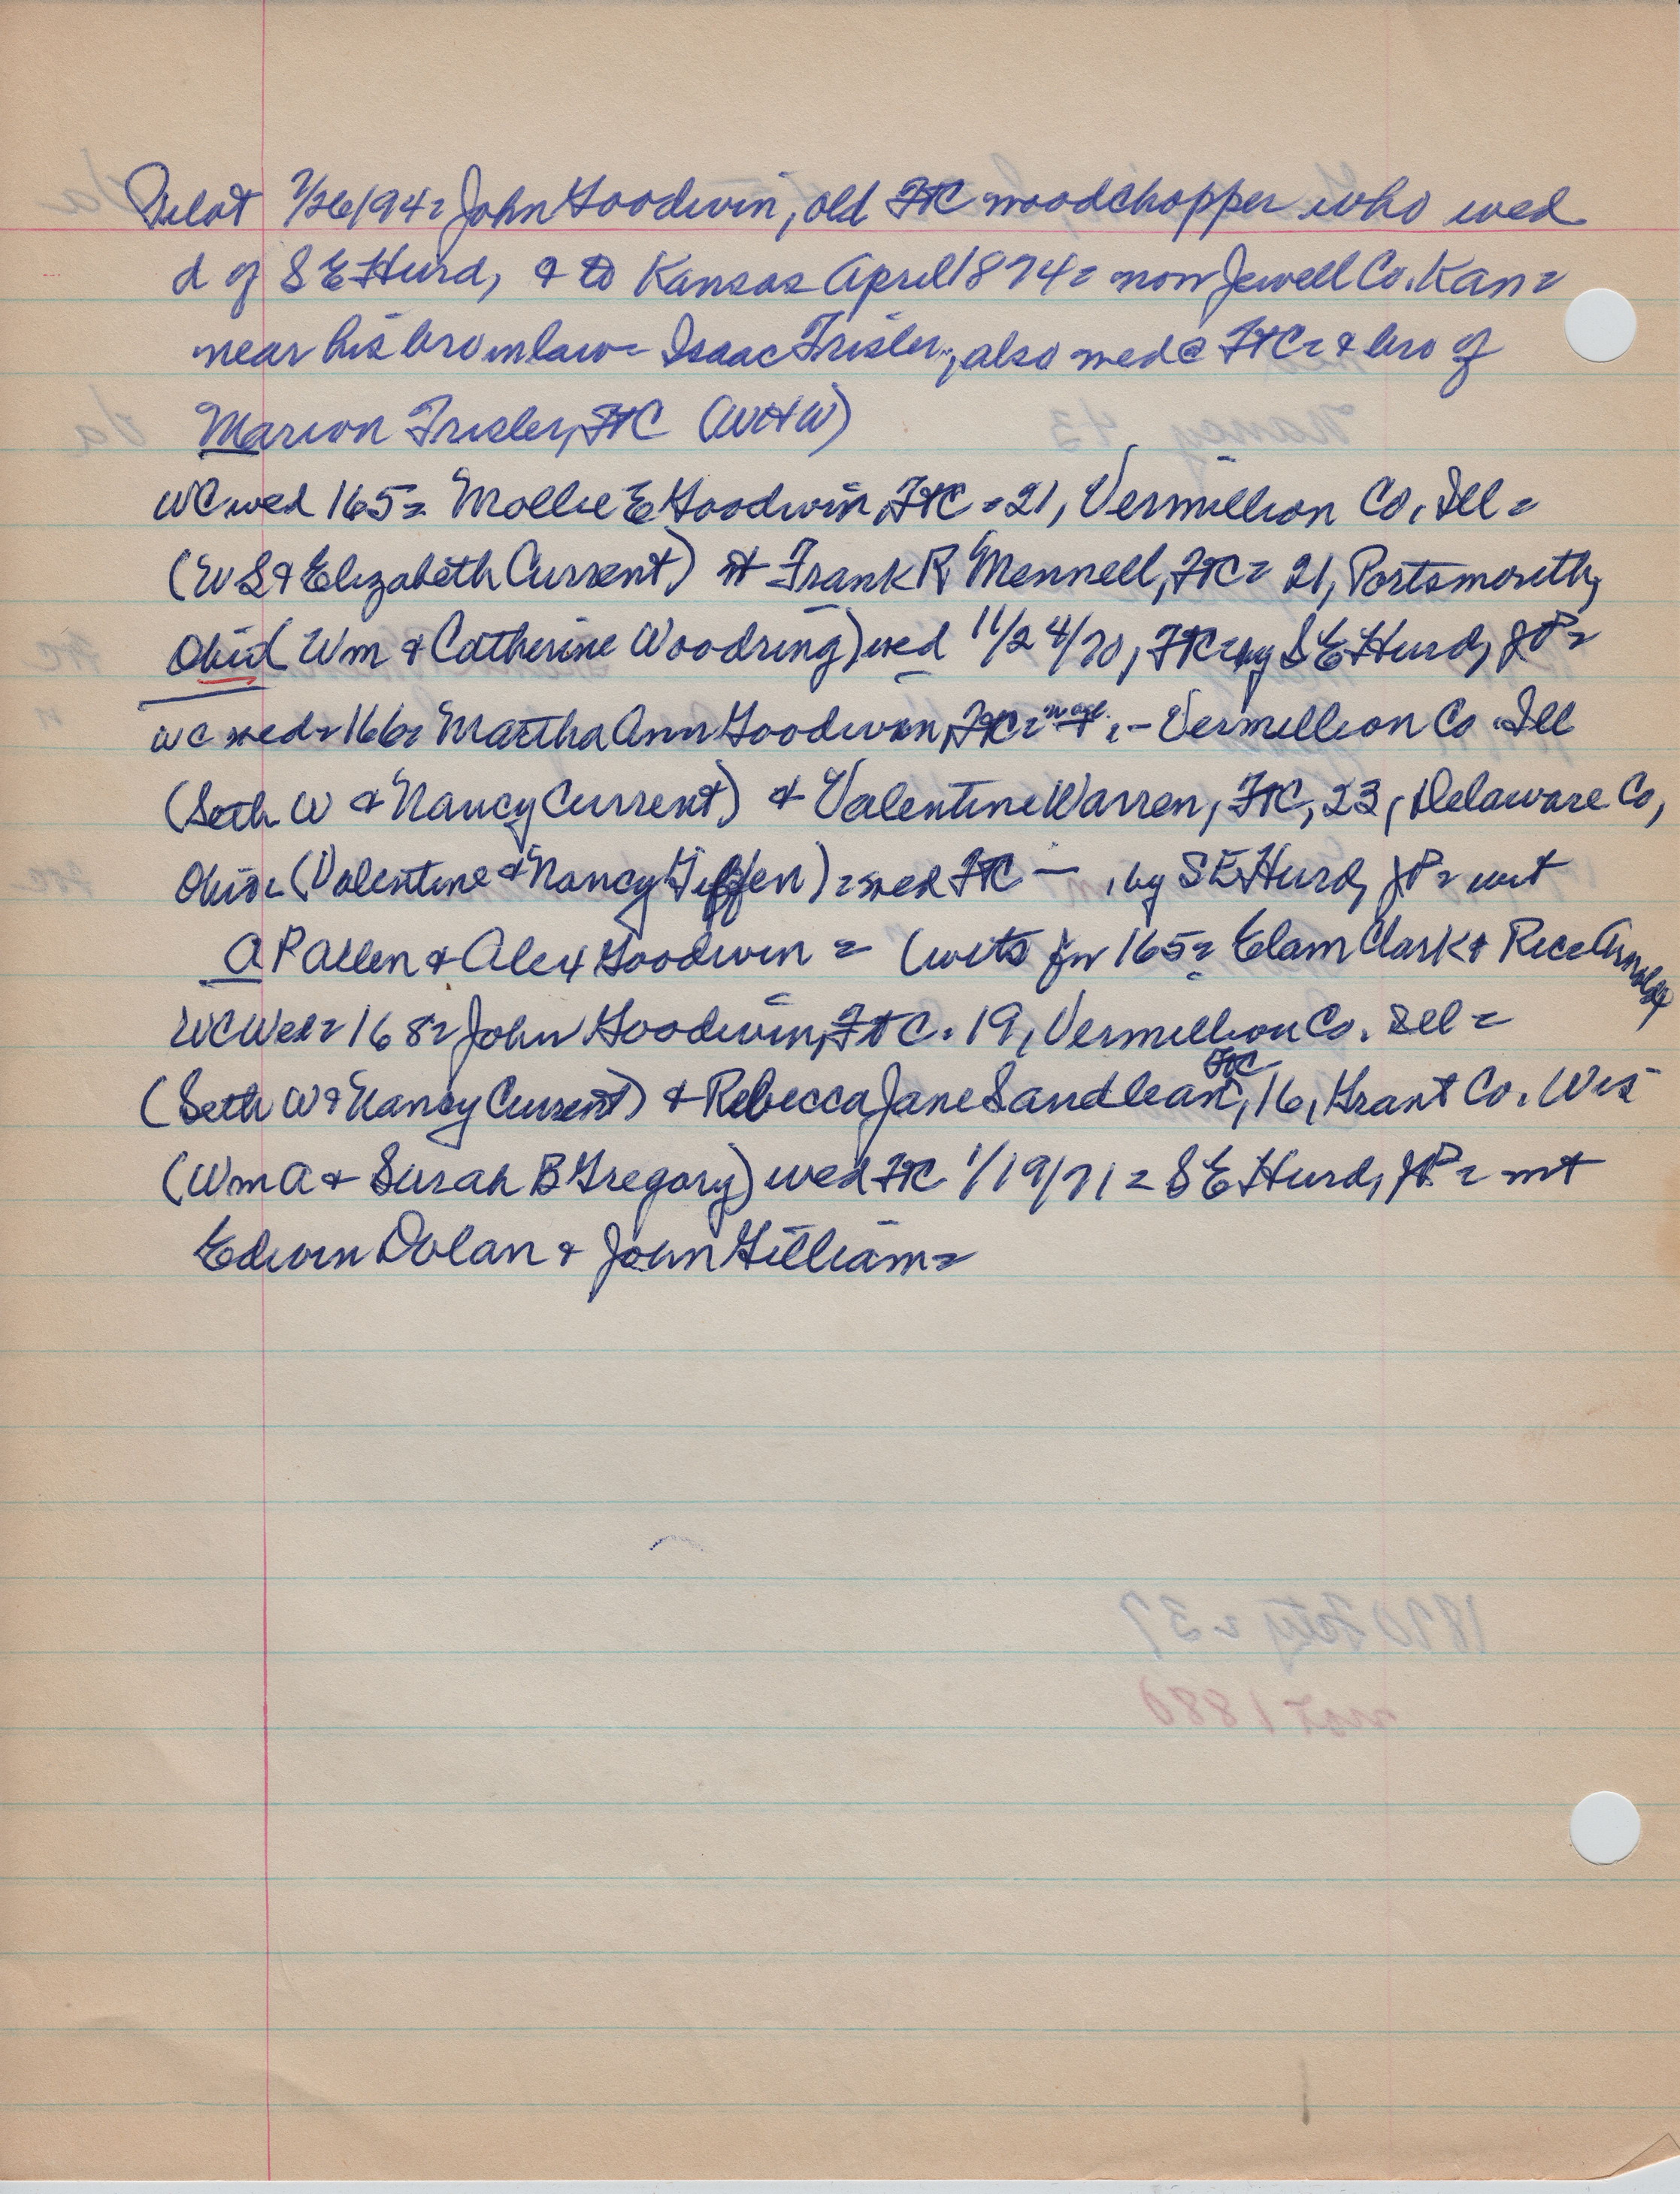 Pilot 7/26/94 = John Goodwin, old FtC woodchopper who wed
d of S E Hurd, & to Kansas April 1874 = now Jewell Co. Kan =
near his bro in law = Isaac Frisler, also wed @ FtC = & bro of
Marion Frisler, FtC (WHW)
WC wed 165 = Mollie E Goodwin, FtC = 21, Vermillion Co, Ill =
(W S & Elizabeth Current) & Frank R Mennell, FtC = 21, Portsmouth,
Ohio (Wm & Catherine Woodring) wed 11/24/70, FtC by S E Hurd, JP =
WC wed = 166 = Martha Ann Goodwin, FtC = , - Vermillion Co. Ill
(Seth W & Nancy Current) & Valentine Warren, FtC, 23, Delaware Co,
Ohio = (Valentine & Nancy ) = wed FtC — , by S E Hurd, JP = wit
A P Allen & Alex Goodwin = (wits for 165 = Elam Clark & Rice Arnold)
WC Wed = 168 = John Goodwin, FtC. 19, Vermillion Co. Ill =
FtC
(Seth W & Nancy Current) & Rebecca Jane Sandlean, 16, Grant Co. Wis
(Wm A & Surah B Gregory) wed FtC 1/19/71 = S E Hurd, JP = wit
Edwin Dolan & John Gilliam =